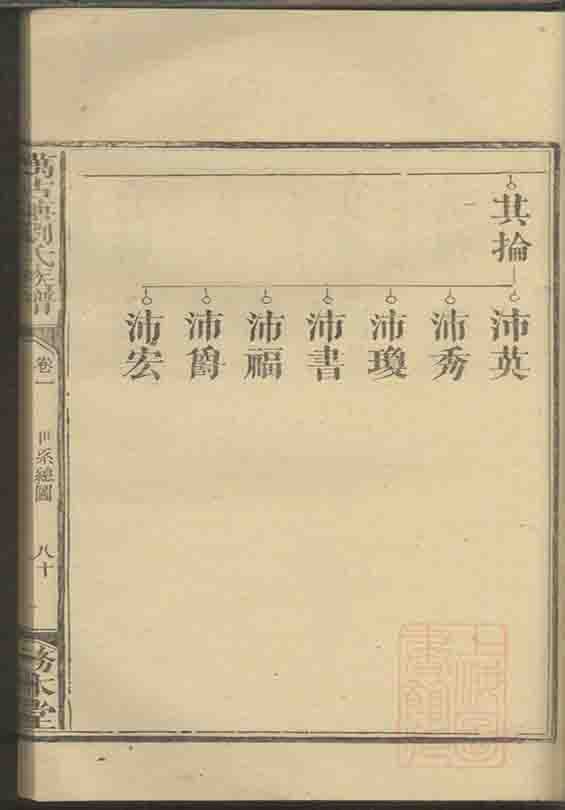 其掄
沛英
沛秀
沛瓊
沛書
沛福
沛爵
沛宏
萬古塘劉氏族譜
卷一
世系總圖
八十
務本堂
上海圖書館藏